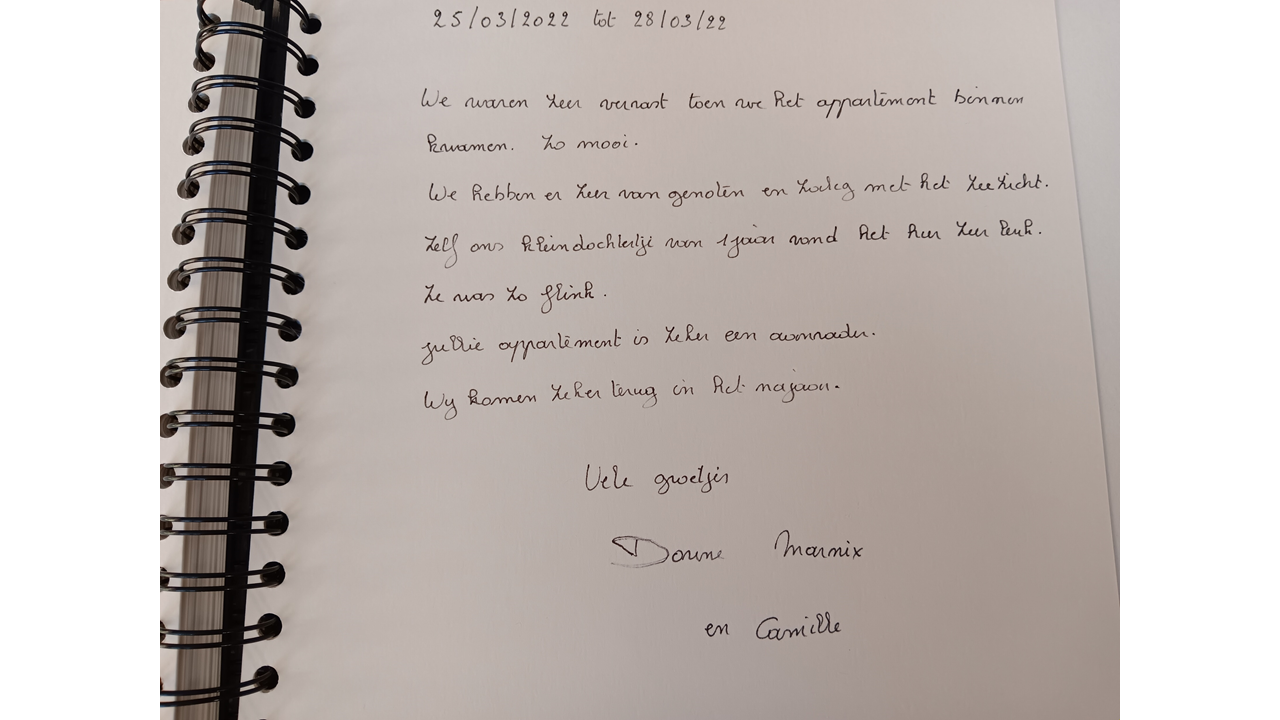 25/03/2022 tot 28/03/22
We waren zeer verrast toen we het appartement binnen
kwamen. Zo mooi.
We hebben er zeer van genoten en zalig met het zeezicht.
Zelf ons kleindochtertje van 1 jaar vond het hier zeer leuk.
Ze was zo flink.
jullie appartement is zeker een aanrader.
Wij komen zeker terug in het najaar.
Vele groetjes
Marnix
en Camille